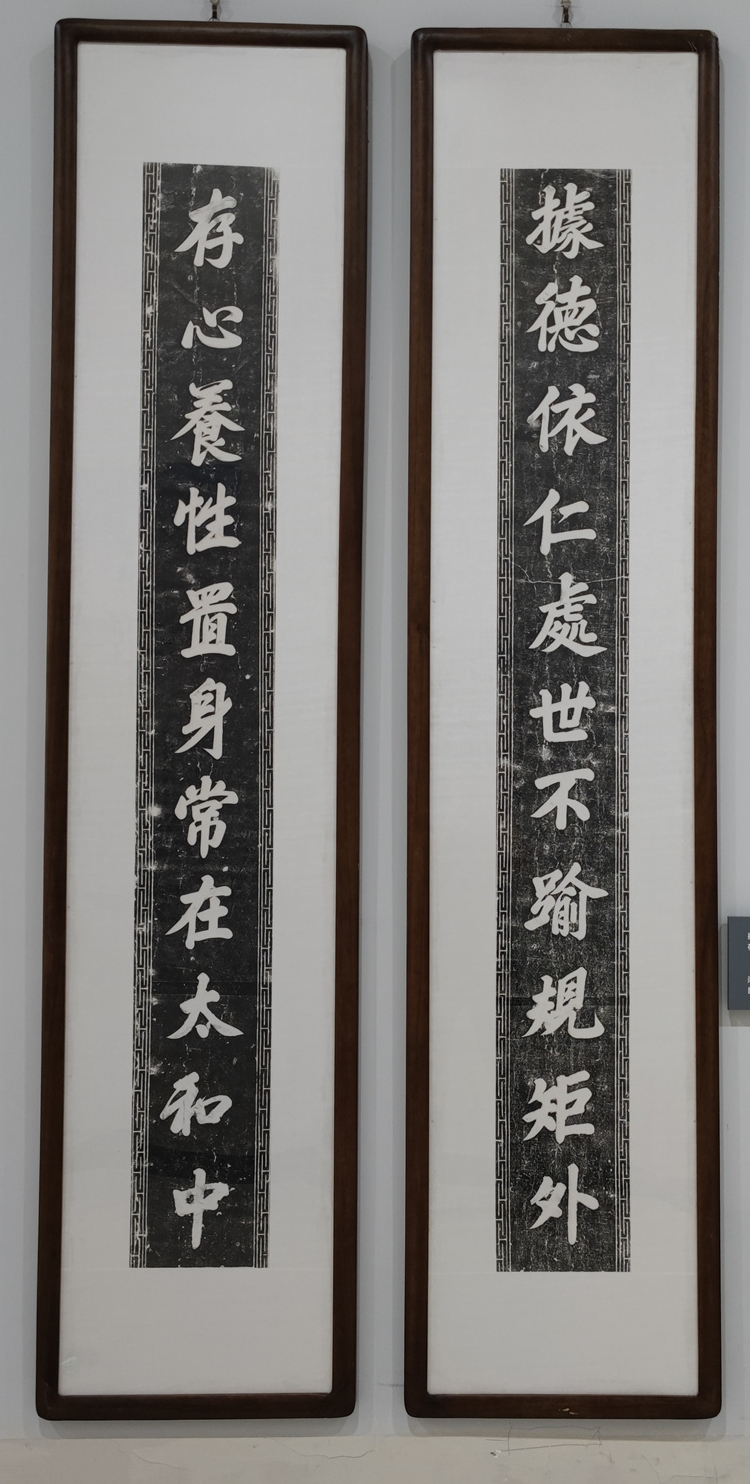 據德依仁處世不踰規矩外
存心養性置身常在太和中